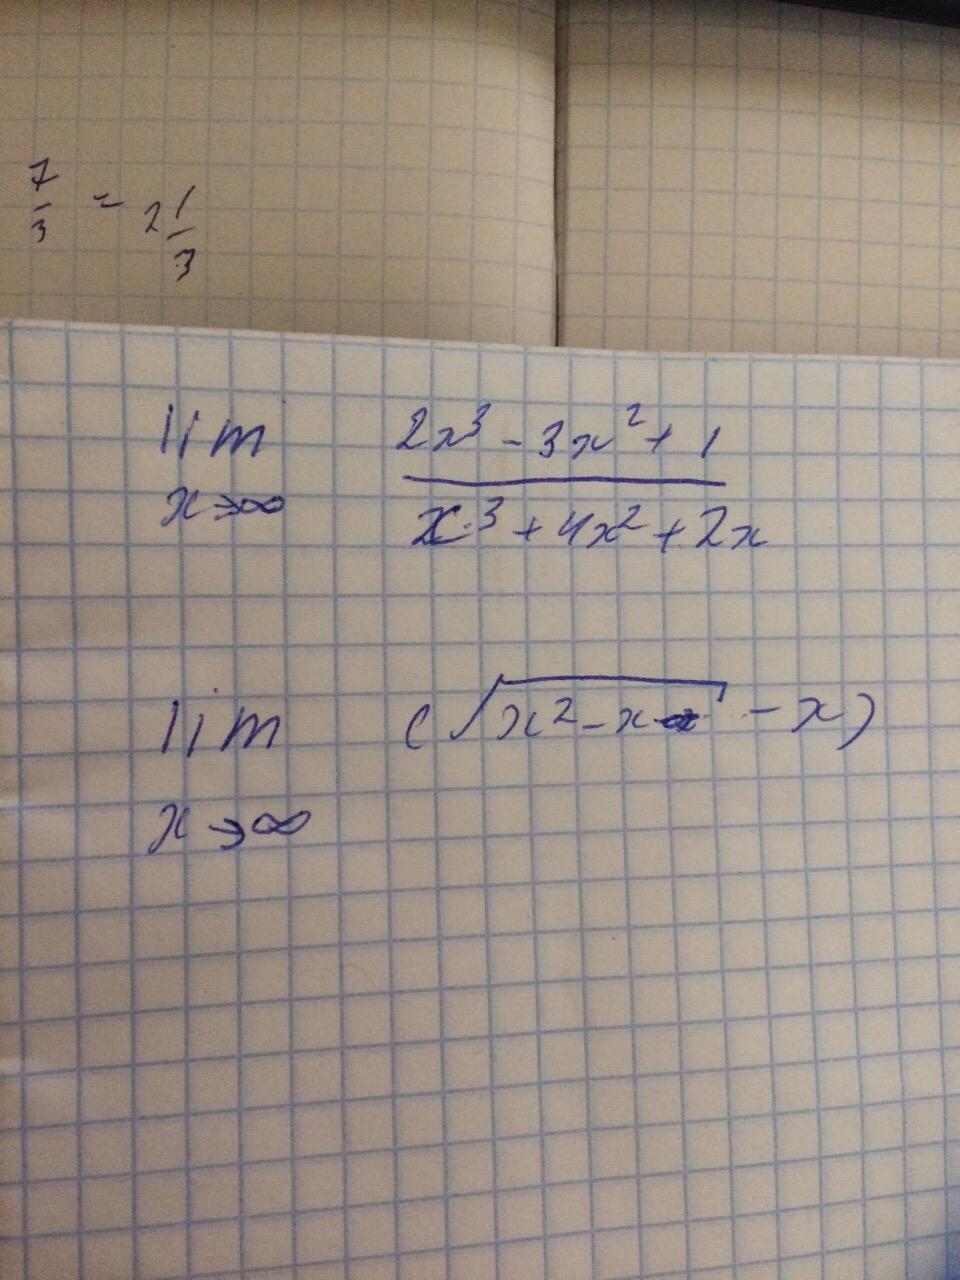 7/3 = 2 1/3
lim x→∞ (2x³ - 3x² + 1)/(x³ + 4x² + 2x)
lim x→∞ (√(x² - x) - x)